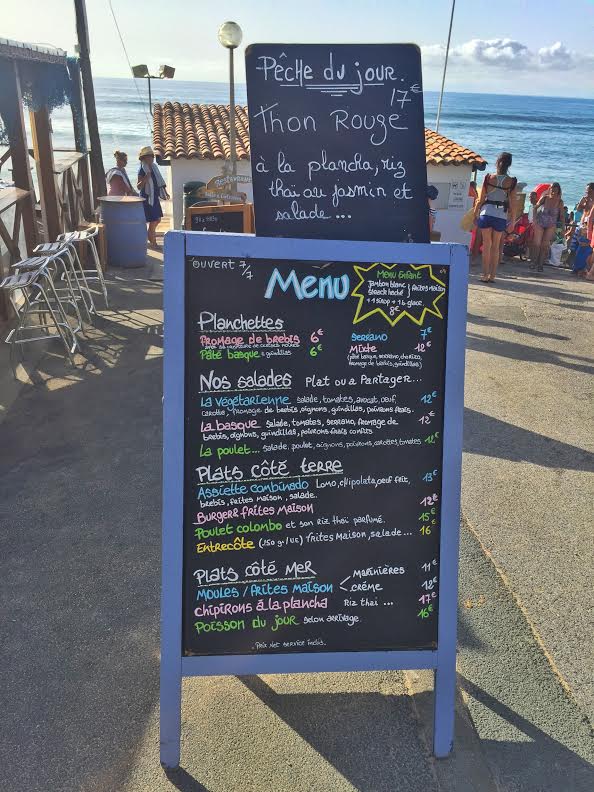 Pêche du jour.
17€
Thon Rouge
à la plancha, riz
thai au jasmin et
salade...
OUVERT 7/7
Menu
Menu Enfant
Jambon blanc
Steack haché } frites maison
+ 1 sirop + 1 b glace.
8€
Planchettes
Fromage de brebis 6€
Pâté basque & guindillas 6€
Serrano 7€
Mixte 12€
(pâté basque, serrano, chorizo,
fromage de brebis, guindillas)
Nos salades Plat ou a Partager...
La végétarienne salade, tomates, avocat, oeuf, 12€
carotte, fromage de brebis, oignons, guindillas, poivrons frais.
La basque salade, tomates, serrano, fromage de 12€
brebis, oignons, guindillas, poivrons frais confits
La poulet... salade, poulet, oignons, poivrons, carottes, tomates 12€
Plats côté terre
Assiette combinado Lomo, chipolata, oeuf frit, 13€
brebis, frites maison, salade.
Burger & frites maison 12€
Poulet colombo et son riz thaï parfumé. 15€
Entrecôte (250 gr/UE) frites maison, salade... 16€
Plats côté mer
Moules / frites maison < Marinières 11€
crème 12€
Chipirons à la plancha Riz thai... 17€
Poisson du jour selon arrivage. 16€
Prix net service inclus.